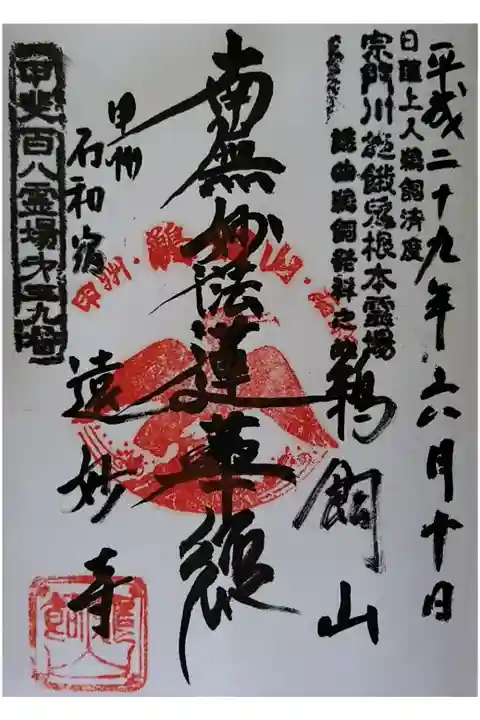 平成二十九年六月十日
日蓮上人鵜飼済度
宗門川施餓鬼根本霊場
謡曲鵜飼発祥之
鵜飼山
南無妙法蓮華経
甲州・鵜 山・
甲州
石和宿
遠妙寺
甲斐百八霊場才四九番